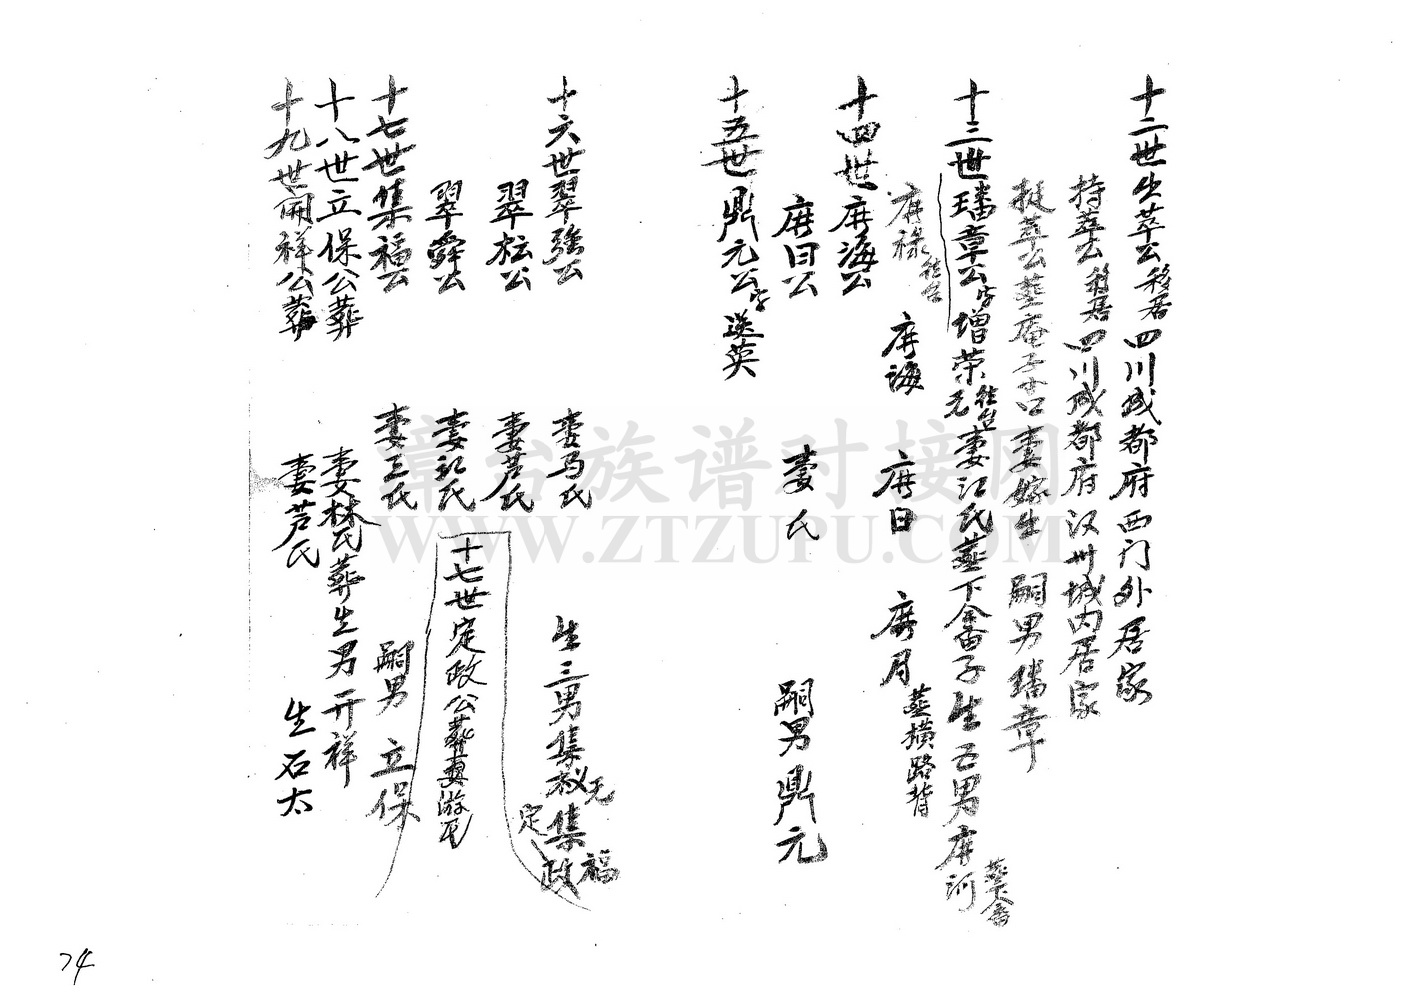 十二世生萃公移居四川成都府西门外居家
持萃公移居四川成都府汉州城内居家
挺萃公葬庵子口妻嫁生 嗣男璠章
十三世璠章公字增荣往台妻江氏葬下畲子生五男庥河葬下畲
庥禄往台 庥海 庥日 庥月葬横路背
十四世庥海公
庥日公 妻 氏 嗣男鼎元
十五世鼎元公字送英
十六世翠强公 妻马氏 生三男集 无集福
定政
翠松公 妻芦氏
翠舜公 妻江氏
十七世定政公葬 妻游氏
十七世集福公 妻王氏 嗣男 立保
十八世立保公葬 妻林氏葬生男开祥
十九世开祥公葬 妻芦氏 生石太
章台族谱对接网
WWW.ZTZUPU.COM
74